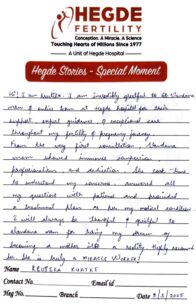 HEGDE
FERTILITY
Conception. A Miracle. A Science
Touching Hearts of Millions Since 1977
A Unit of Hegde Hospital
Hegde Stories - Special Moment
Hi! I am Rutuja. I am incredibly grateful to Dr Vandana
mam & entire team at Hegde hospital for their
support expert guidance & exceptional care
throughout my fertility & pregnancy journey.
From the very first consultation Vandana
mam showed immense compassion
professionalism and dedication. She took time
to understand my concerns, answered all
my questions with patience and provided
a treatment plan as per my medical condition
I will always be thankful & grateful to
Vandana mam for making my dream of
becoming a mother into a reality. Highly recommend
her. She is truly a MIRACLE WORKER!
Name RRUTUJA KHATKE
Contact No. Email id
Hsg No. Branch Date 2025